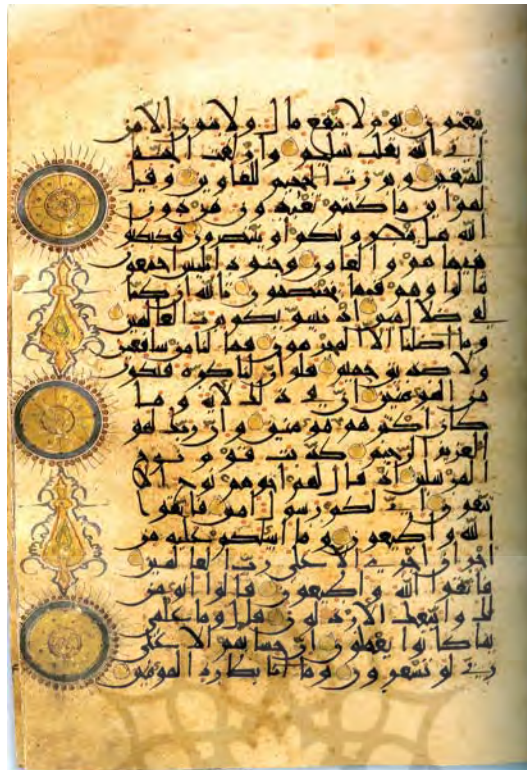 يبعثون يوم لا ينفع مال ولا بنون الا من
اتى الله بقلب سليم وازلفت الجنة
للمتقين وبرزت الجحيم للغاوين وقيل
لهم اين ما كنتم تعبدون من دون
الله هل ينصرونكم او ينتصرون فكبكبوا
فيها هم والغاون وجنود ابليس اجمعون
قالوا وهم فيها يختصمون تالله ان كنا
لفي ضلال مبين اذ نسويكم برب العالمين
وما اضلنا الا المجرمون فما لنا من شافعين
ولا صديق حميم فلو ان لنا كرة فنكون
من المؤمنين ان في ذلك لاية وما
كان اكثرهم مؤمنين وان ربك لهو
العزيز الرحيم كذبت قوم نوح
المرسلين اذ قال لهم اخوهم نوح الا
تتقون اني لكم رسول امين فاتقوا
الله واطيعون وما اسئلكم عليه من
اجر ان اجري الا على رب العالمين
فاتقوا الله واطيعون قالوا انؤمن
لك واتبعك الارذلون قال وما علمي
بما كانوا يعملون ان حسابهم الا على
ربي لو تشعرون وما انا بطارد المؤمنين